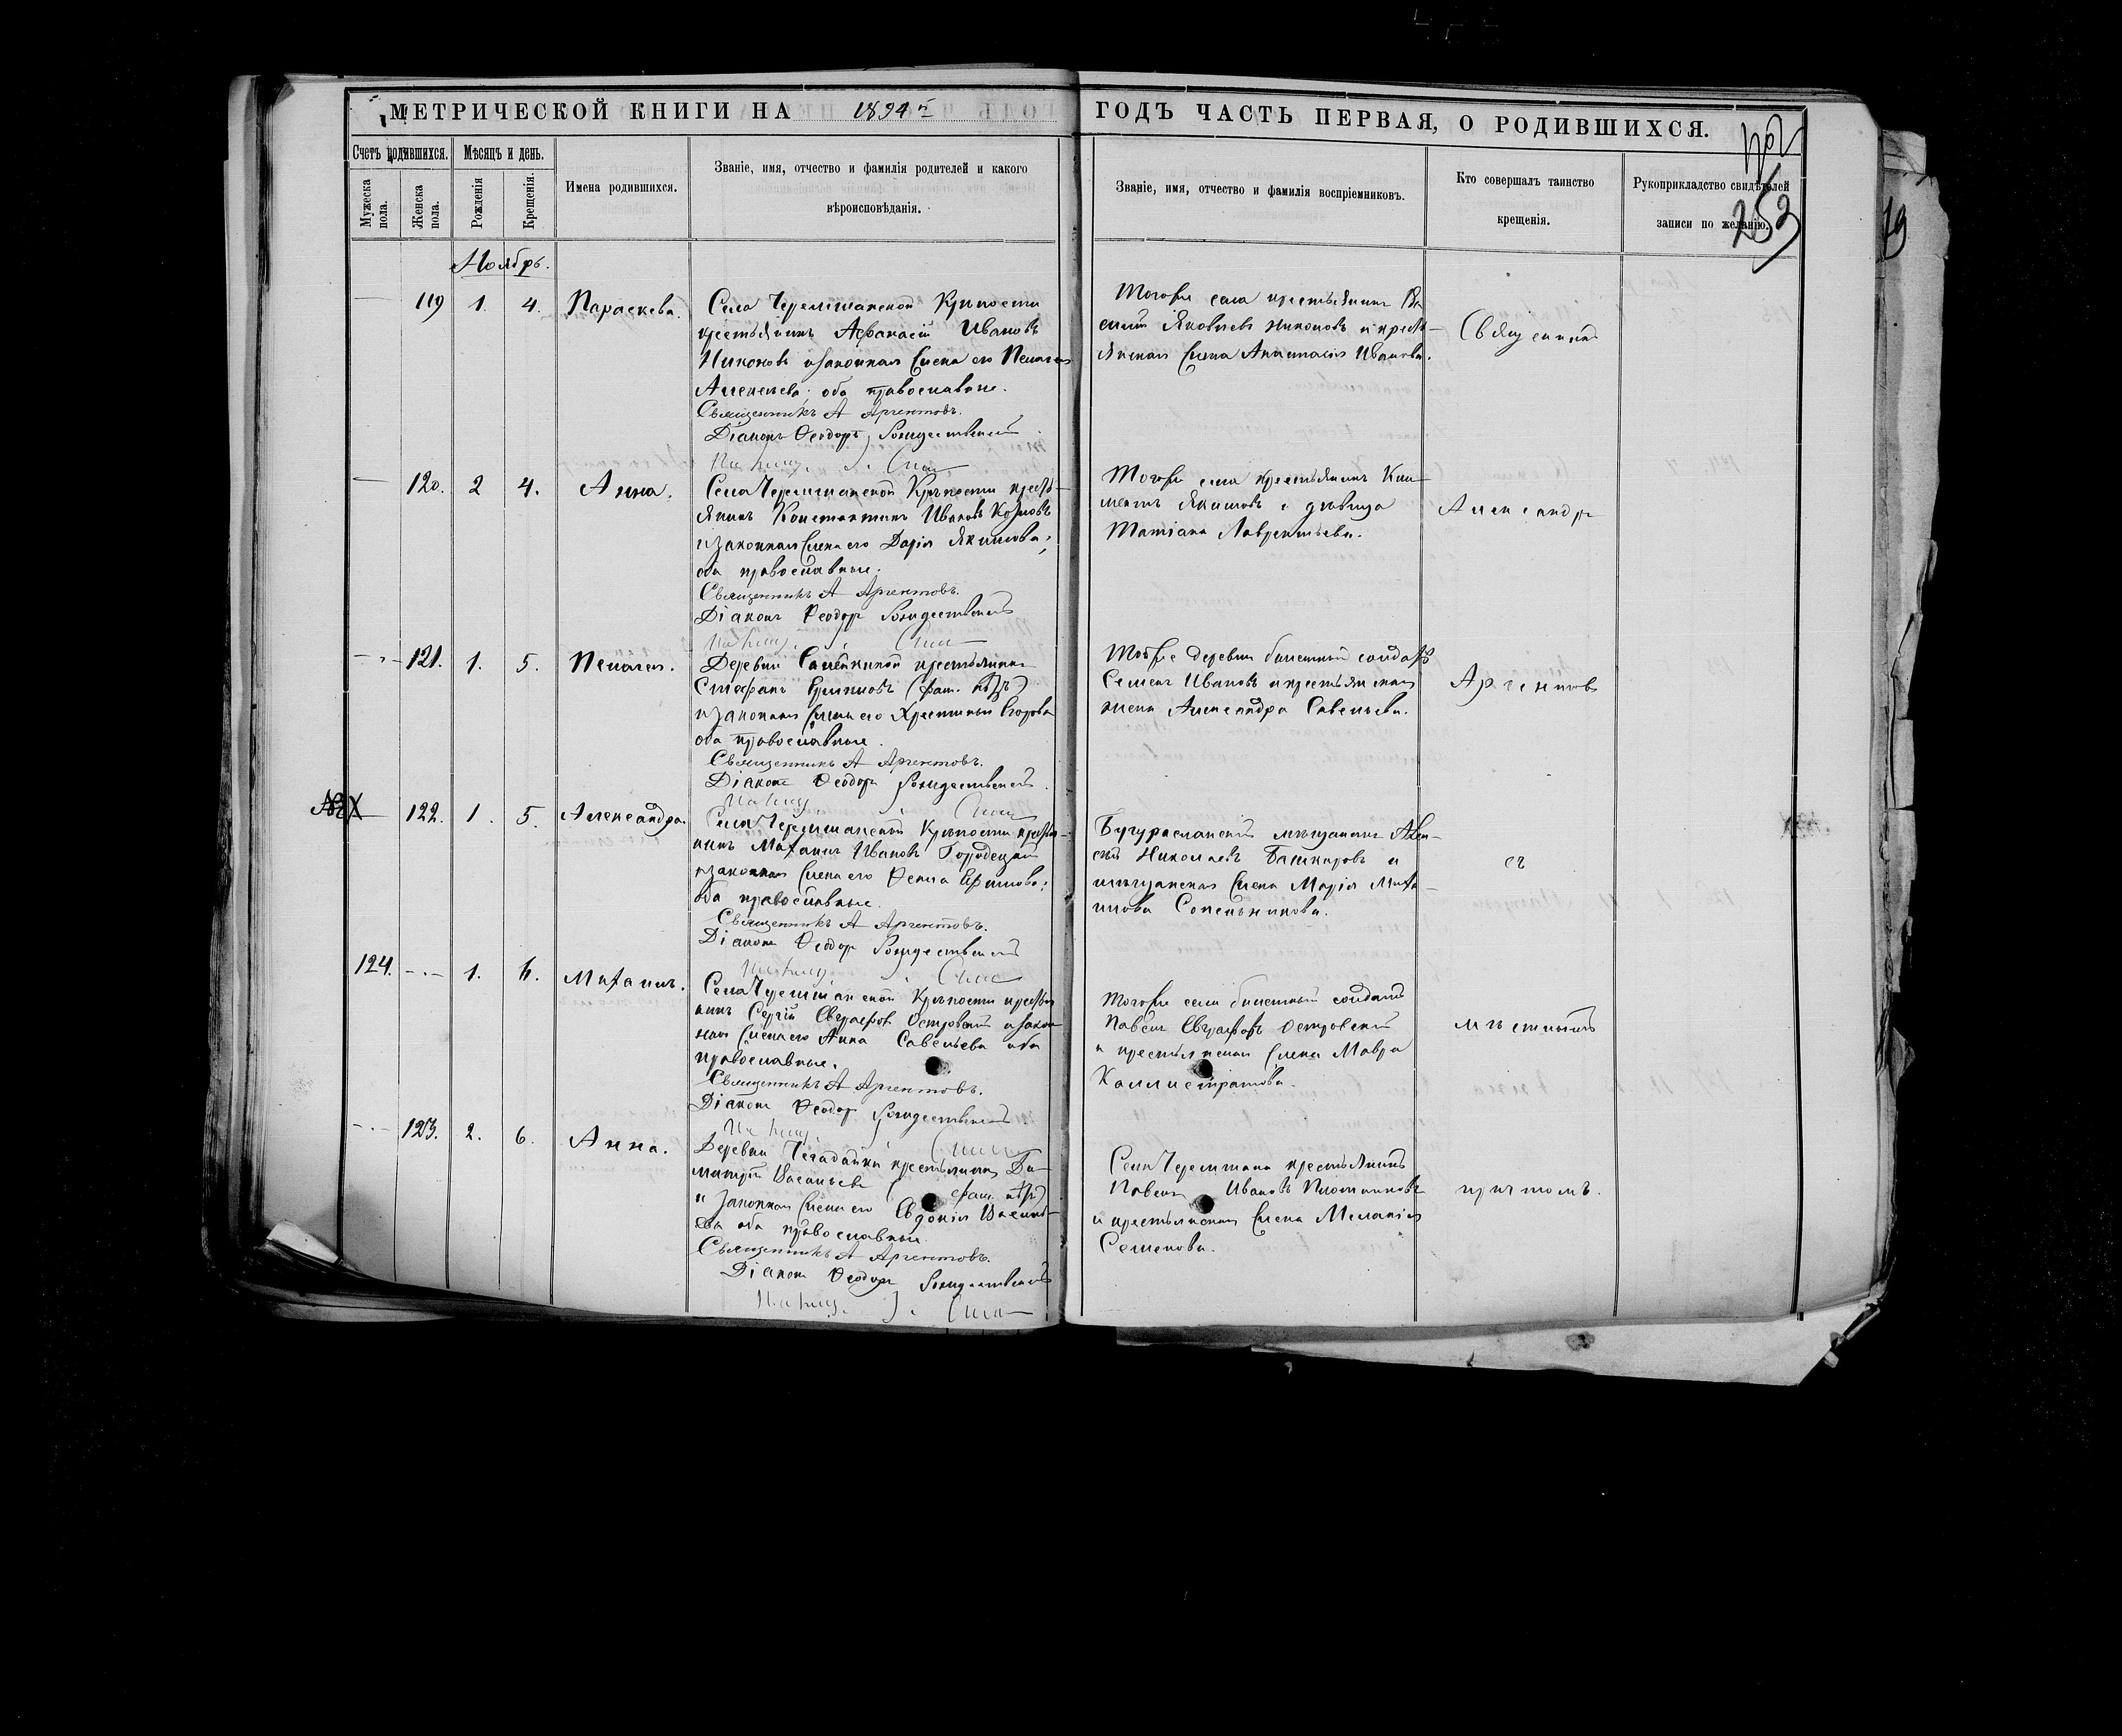 МЕТРИЧЕСКОЙ КНИГИ НА 1894 ГОДЪ ЧАСТЬ ПЕРВАЯ, О РОДИВШИХСЯ.
253
Счетъ родившихся.
Мужеска пола.
Женска пола.
Мѣсяцъ и день.
Рожденія
Крещенія.
Имена родившихся.
Званіе, имя, отчество и фамилія родителей и какого
вѣроисповѣданія.
Званіе, имя, отчество и фамилія воспріемниковъ.
Кто совершалъ таинство
крещенія.
Рукоприкладство свидѣтелей
записи по желанію.
Ноябрь.
119 1. 4. Параскева.
Села Черемшанской Крѣпости
крестьянинъ Афанасій Ивановъ
Никоновъ и законная жена его Пелагея
Алексѣева; оба православные.
Священникъ А Аргентовъ.
Діаконъ Ѳеодоръ Рождественскій
Тогоже села крестьянинъ Ва
силій Яковлевъ Никоновъ и кресть-
янская жена Анастасія Иванова.
Священникъ
120. 2 4. Анна.
Села Черемшанской Крѣпости кресть-
янинъ Константинъ Ивановъ Козловъ
и законная жена его Дарія Якимова;
оба православные.
Священникъ А Аргентовъ.
Діаконъ Ѳеодоръ Рождественскій
Тогоже села крестьянинъ Кли-
ментъ Якимовъ и дѣвица
Татіана Лаврентьева.
Александръ
121. 1. 5. Пелагея.
Деревни крестьянинъ
Стефанъ (фам. нѣтъ)
и законная жена его Егорова
оба православные.
Священникъ А Аргентовъ.
Діаконъ Ѳеодоръ Рождественскій.
Тойже деревни билетный солдатъ
Семенъ Ивановъ и крестьянская
жена Александра Савельева.
Аргентовъ
122. 1. 5. Александра.
Села Черемшанской Крѣпости крестья-
нинъ Михаилъ Ивановъ Городецкій
и законная жена его Ефимова;
оба православные.
Священникъ А Аргентовъ.
Діаконъ Ѳеодоръ Рождественскій
Бугурусланскій мѣщанинъ Алек-
сѣй Николаевъ Башкировъ и
мѣщанская жена Марія Миха-
илова
съ
124. -.- 1. 6. Михаилъ.
Села Черемшанской Крѣпости крестья
нинъ Сергій Евграфовъ Островскій и закон
ная жена его Анна Савельева оба
православные.
Священникъ А Аргентовъ.
Діаконъ Ѳеодоръ Рождественскій.
Тогоже села билетный солдатъ
Павелъ Евграфовъ Островскій
и крестьянская жена Мавра
Каллистратова.
мѣстнымъ
-.- 123. 2. 6. Анна.
Деревни крестьянинъ Ди-
митрій Васильевъ (фам. нѣтъ)
и законная жена его Евдокія Василь-
ева оба православные.
Священникъ А Аргентовъ.
Діаконъ Ѳеодоръ Рождественскій
Села Черемшана крестьянинъ
Павелъ Ивановъ Плотниковъ
и крестьянская жена Меланія
Семенова.
причтомъ.